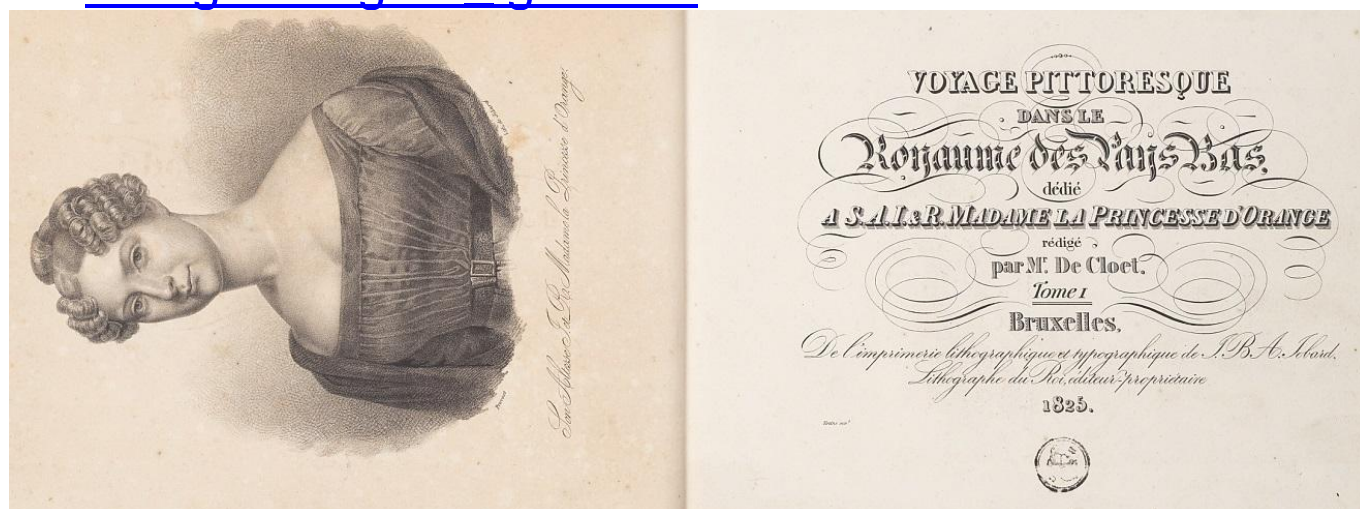 Son Altesse I. et R. Madame la Princesse d'Orange.
VOYAGE PITTORESQUE
DANS LE
Royaume des Pays Bas,
dédié
A S.A.I.& R. MADAME LA PRINCESSE D'ORANGE
rédigé
par Mr. De Cloet,
Tome I
Bruxelles,
De l'imprimerie lithographique et typographique de J.B.A. Jobard,
Lithographe du Roi, éditeur-propriétaire
1825.